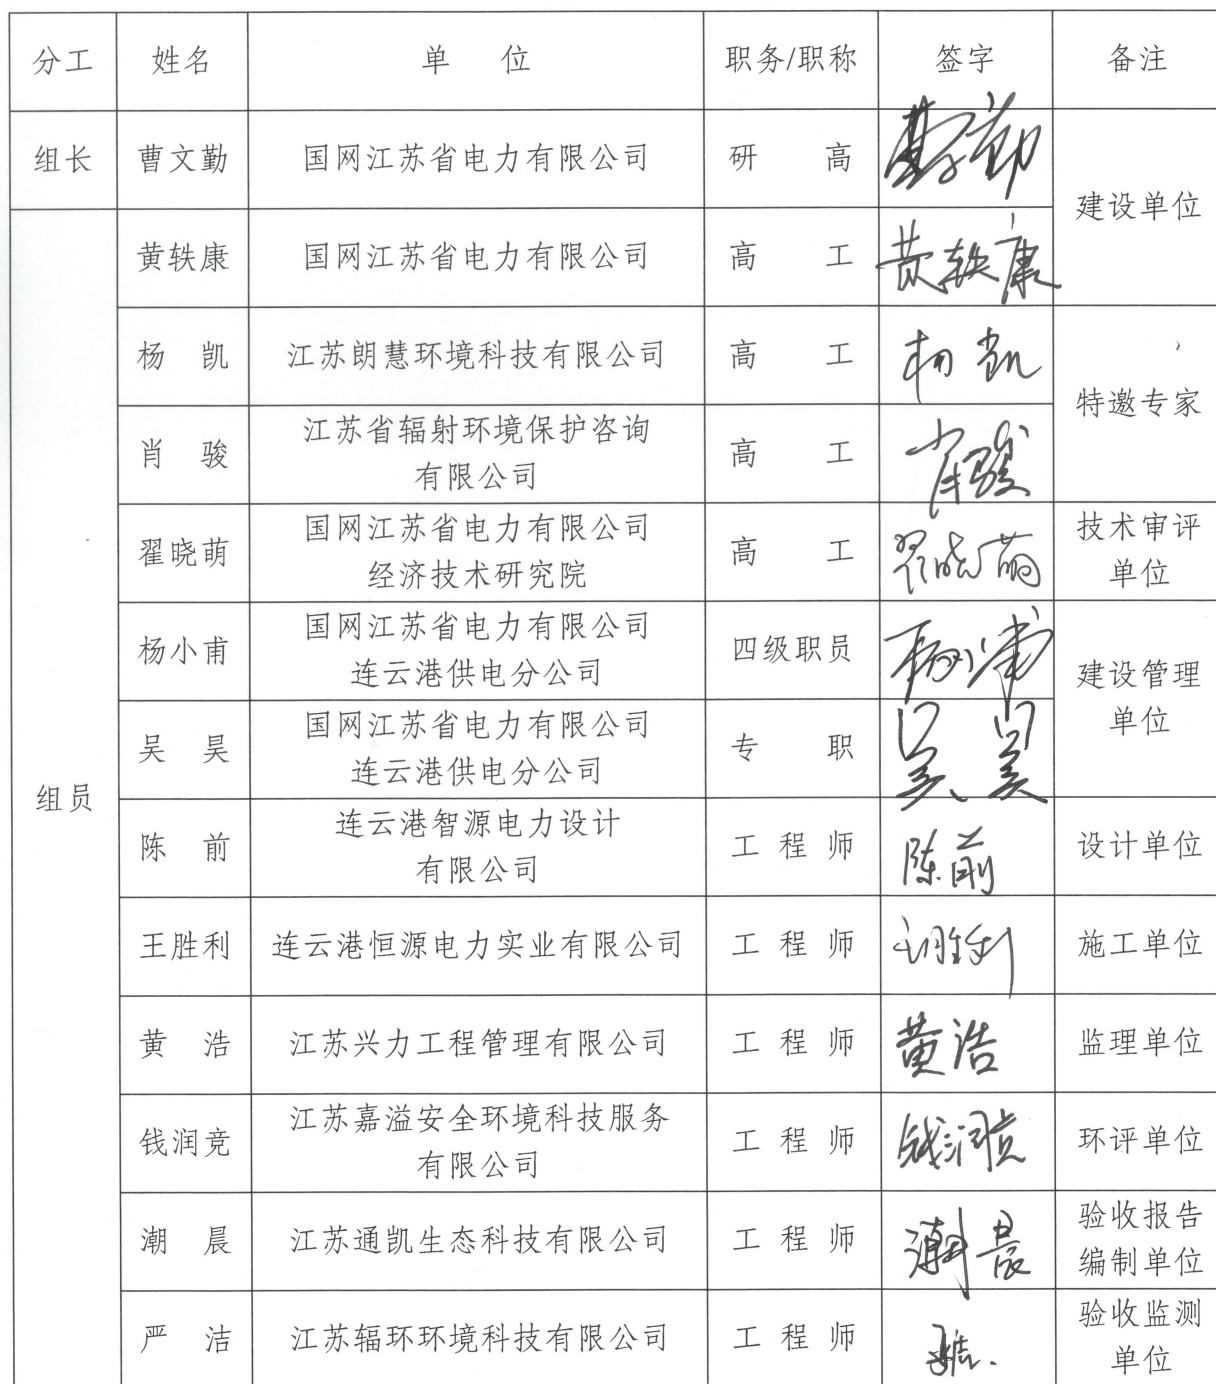 分工 姓名 单 位 职务/职称 签字 备注
组长 曹文勤 国网江苏省电力有限公司 研 高
建设单位
黄轶康 国网江苏省电力有限公司 高 工 黄轶康
杨 凯 江苏朗慧环境科技有限公司 高 工 杨凯
特邀专家
肖 骏 江苏省辐射环境保护咨询
有限公司 高 工 肖骏
翟晓萌 国网江苏省电力有限公司
经济技术研究院 高 工 翟晓萌 技术审评
单位
杨小甫 国网江苏省电力有限公司
连云港供电分公司 四级职员 杨小甫
建设管理
单位
吴 昊 国网江苏省电力有限公司
连云港供电分公司 专 职 吴昊
组员
陈 前 连云港智源电力设计
有限公司 工 程 师 陈前 设计单位
王胜利 连云港恒源电力实业有限公司 工 程 师 王胜利 施工单位
黄 浩 江苏兴力工程管理有限公司 工 程 师 黄浩 监理单位
钱润竞 江苏嘉溢安全环境科技服务
有限公司 工 程 师 钱润竞 环评单位
潮 晨 江苏通凯生态科技有限公司 工 程 师 潮晨 验收报告
编制单位
严 洁 江苏辐环环境科技有限公司 工 程 师 验收监测
单位